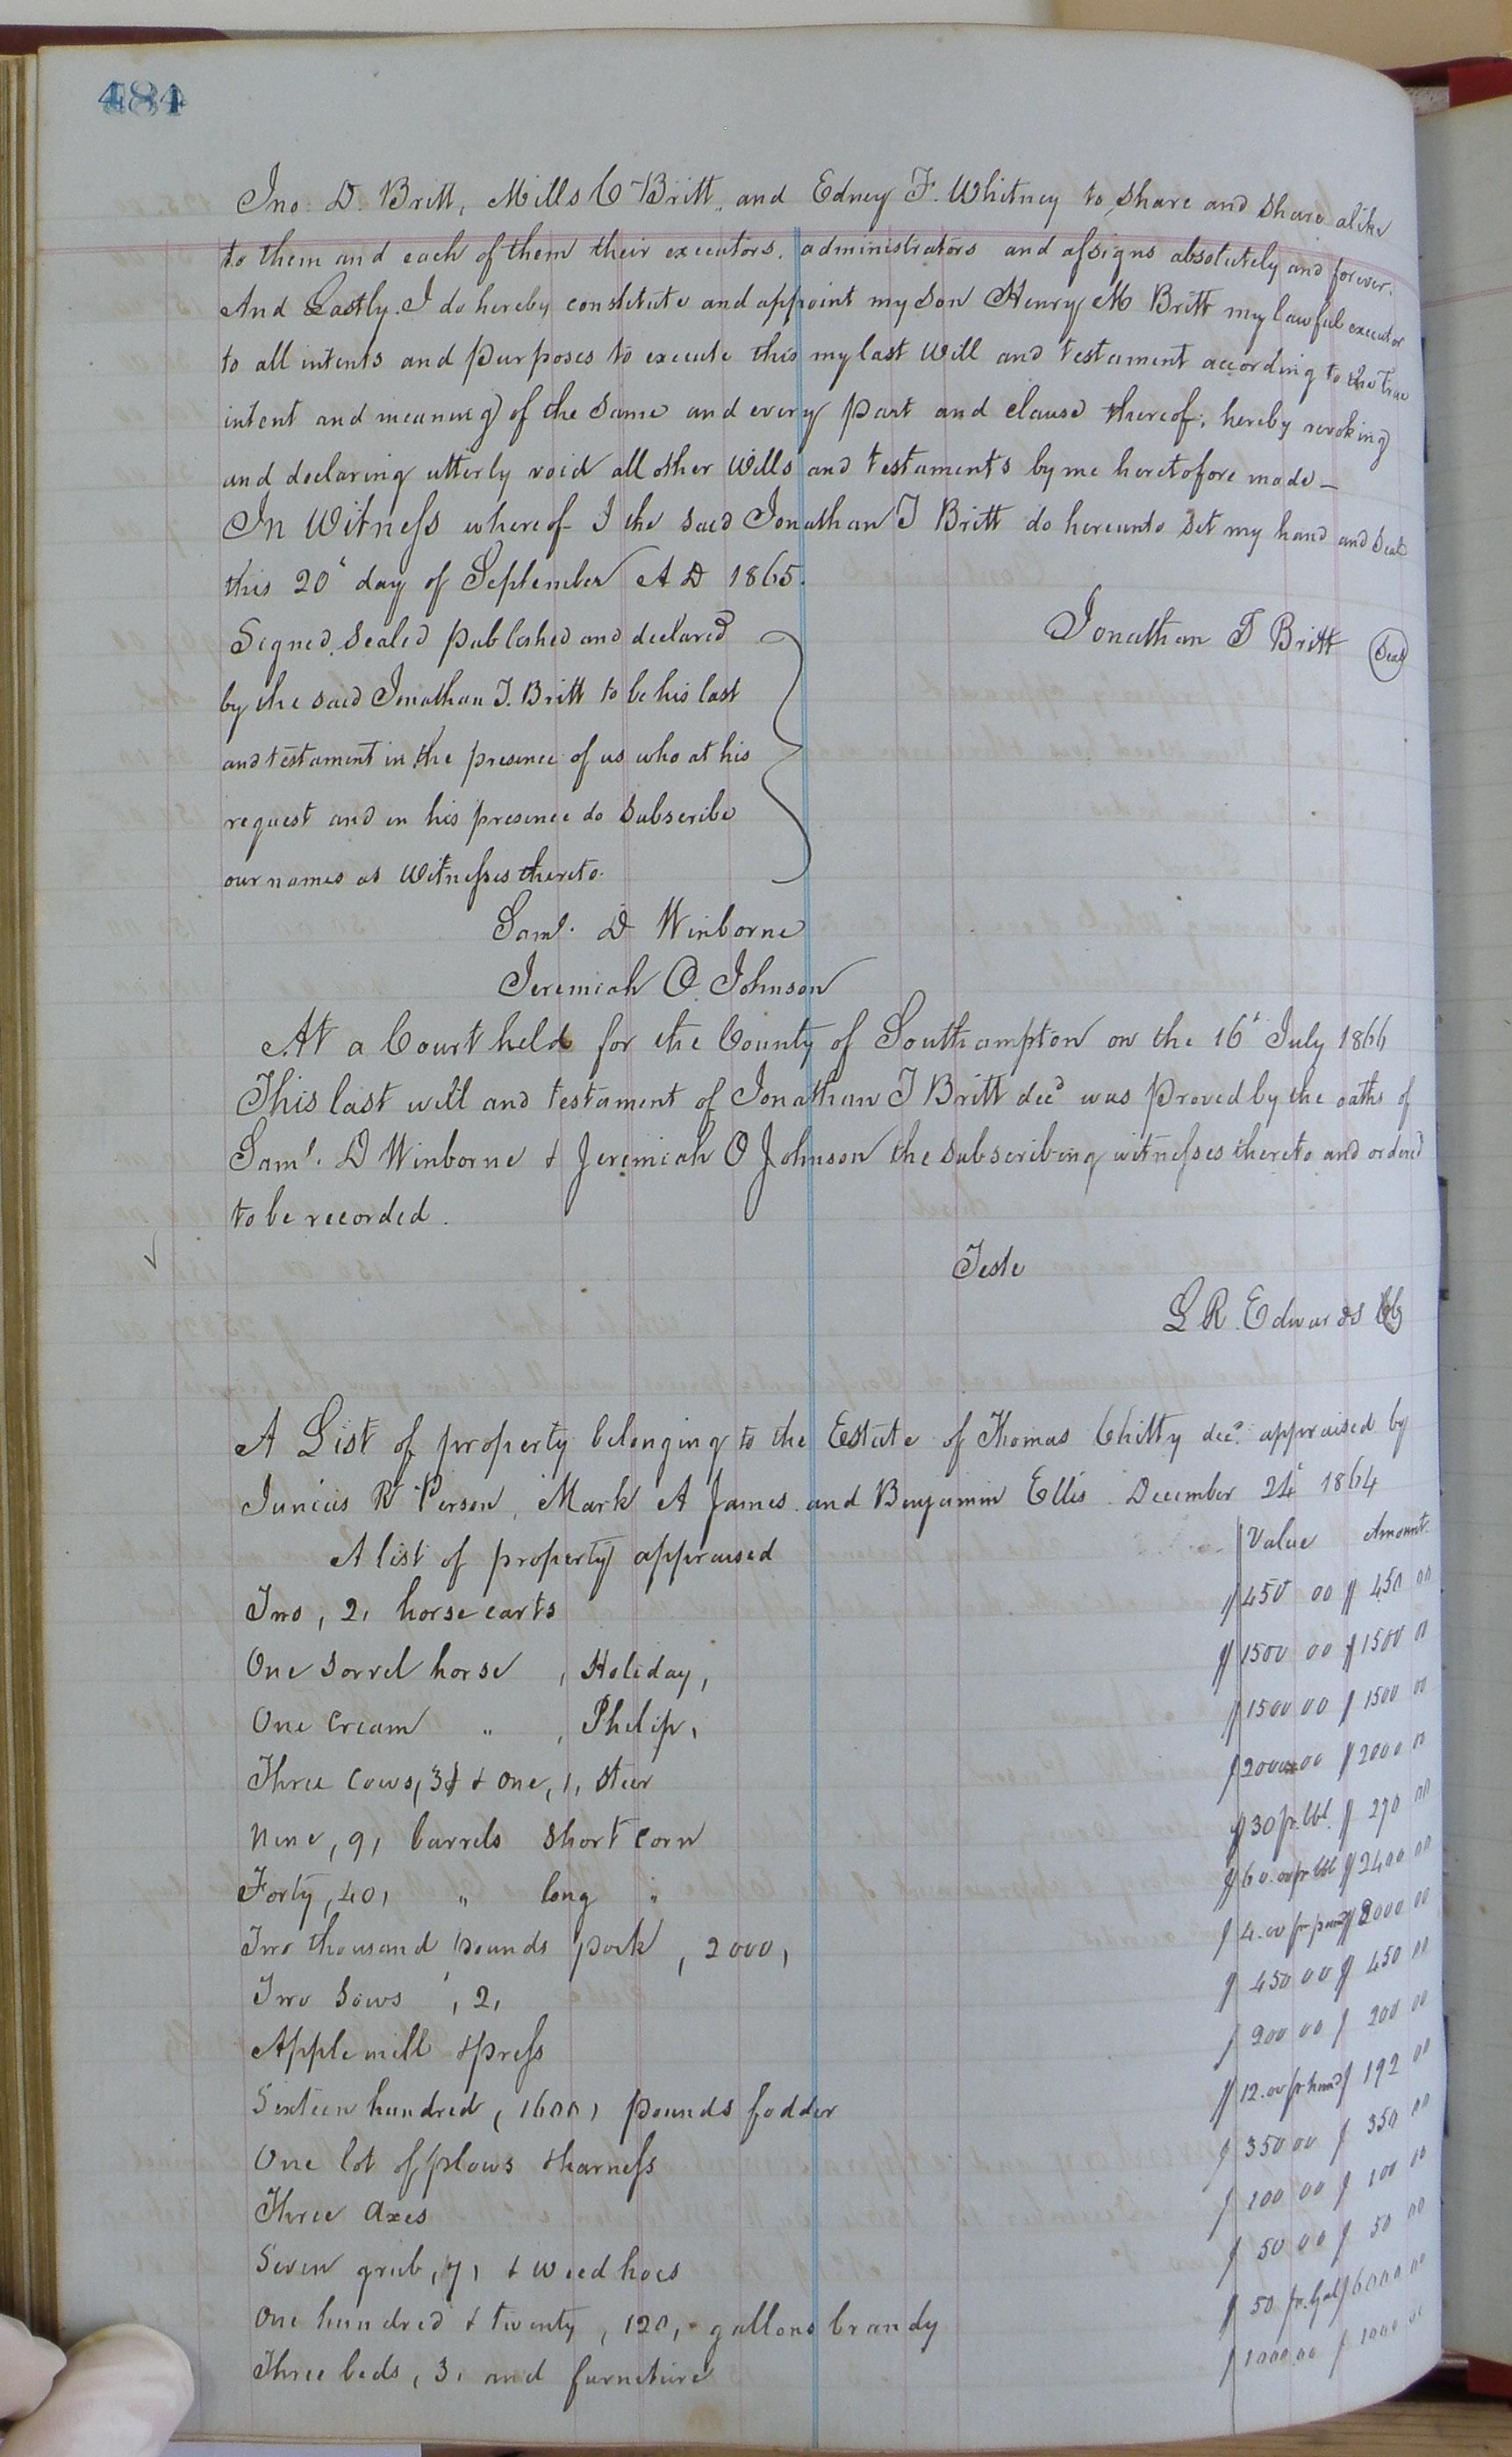 484
Jno. D. Britt, Mills C Britt, and Edney F. Whitney to share and share alike
to them and each of them their executors, administrators and assigns absolutely and forever.
And Lastly. I do hereby constitute and appoint my son Henry M Britt my lawful executor
to all intents and purposes to execute this my last Will and testament according to the true
intent and meaning of the same and every part and clause thereof, hereby revoking
and declaring utterly void all other Wills and testaments by me heretofore made —
In Witness whereof I the said Jonathan T Britt do hereunto set my hand and seal
this 20' day of September A D 1865.
Signed, sealed published and declared
Jonathan T Britt (Seal)
by the said Jonathan T. Britt to be his last
and testament in the presence of us who at his
request and in his presence do subscribe
our names as witnesses thereto.
Saml. D Winborne
Jeremiah O. Johnson
At a Court held for the County of Southampton on the 16' July 1866
This last will and testament of Jonathan T Britt decd was proved by the oaths of
Saml. D Winborne & Jeremiah O Johnson the subscribing witnesses thereto and ordered
to be recorded.
Teste
L R. Edwards Clk
A List of property belonging to the Estate of Thomas Chitty decd. appraised by
Junius R Person, Mark A James and Benjamin Ellis December 24' 1864
A list of property appraised Value Amount
Two, 2, horse carts $450 00 $450 00
One sorrel horse , Holiday, $1500 00 $1500 00
One cream " , Philip, $1500 00 $1500 00
Three cows, 3, & one, 1, steer $2000 00 $2000 00
Nine, 9, barrels short corn $30 pr. bbl. $270 00
Forty, 40, " long " $60.00 pr bbl $2400 00
Two thousand pounds pork , 2000, $4.00 pr pound $8000 00
Two sows , 2, $450 00 $450 00
Apple mill & press $200 00 $200 00
Sixteen hundred, 1600, pounds fodder $12.00 pr hund $192 00
One lot of plows & harness $350 00 $350 00
Three axes $100 00 $100 00
Seven grub, 7, & weed hoes $50 00 $50 00
One hundred & twenty , 120, gallons brandy $50 pr. Gal $6000 00
Three beds , 3, and furneture $1000.00 $1000 00